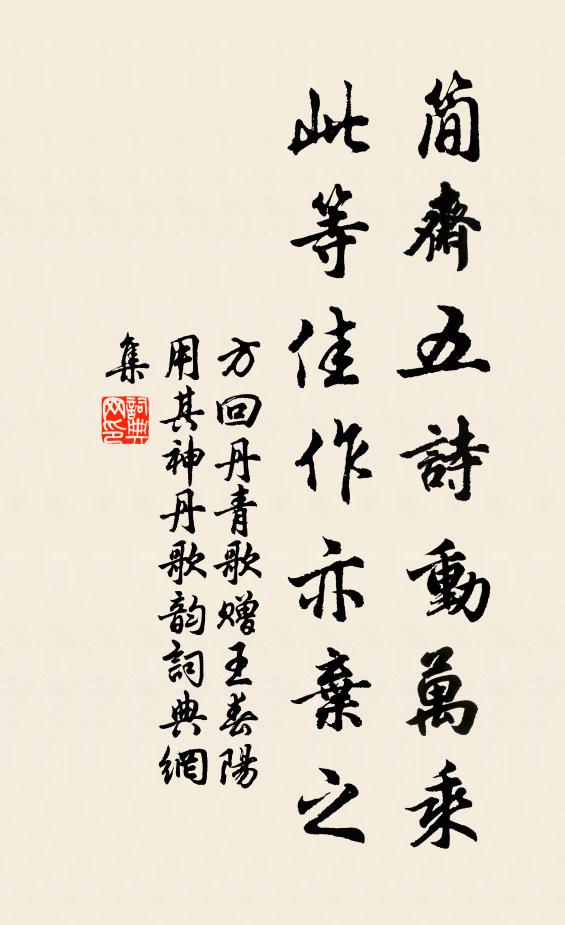 簡齋五詩動萬乘
此等佳作亦棄之
方回丹青歌赠王春陽
用其神丹歌韵詞典網
集
詞典
网印